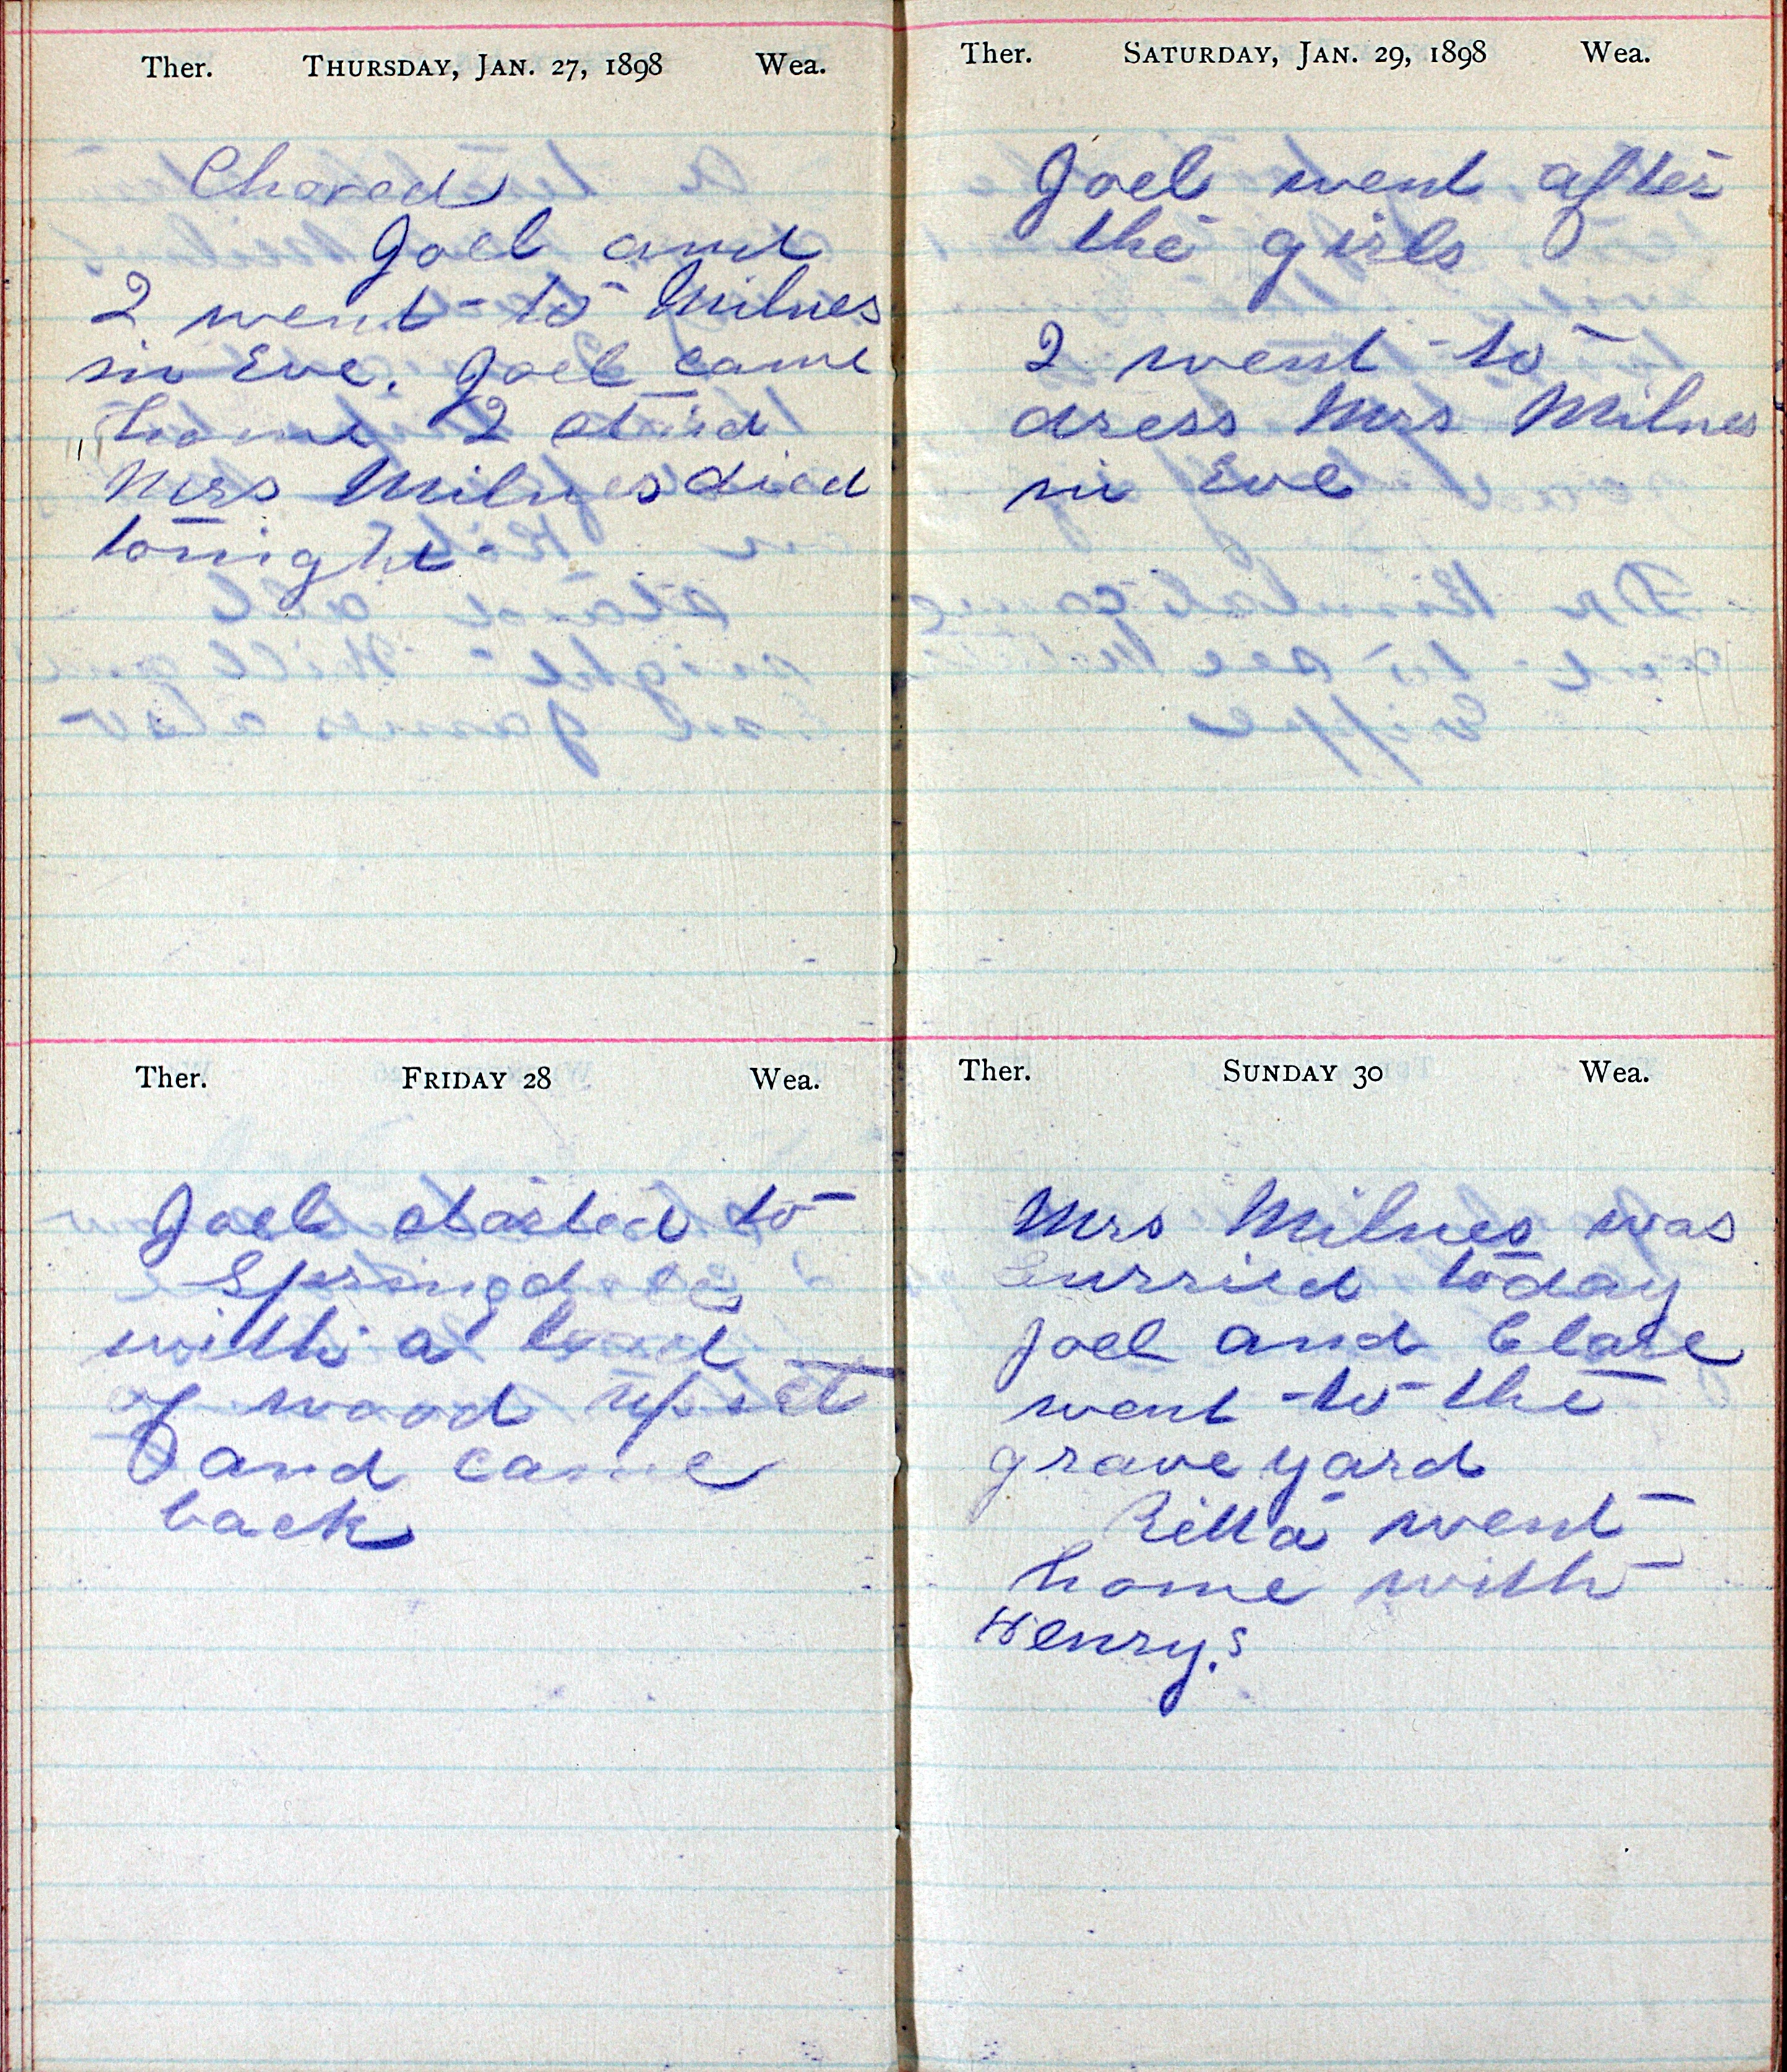 Ther. THURSDAY, JAN. 27, 1898 Wea.
Chored
Joel and
I went to Milnes
in Eve. Joel came
home I staid
Mrs Milnes died
tonight
Ther. FRIDAY 28 Wea.
Joel started to
Springdale
with a load
of wood upset
and came
back
Ther. SATURDAY, JAN. 29, 1898 Wea.
Joel went after
the girls
I went to
dress Mrs Milnes
in Eve
Ther. SUNDAY 30 Wea.
Mrs Milnes was
burried today
Joel and Clare
went to the
grave yard
Rilla went
home with
Henry.s